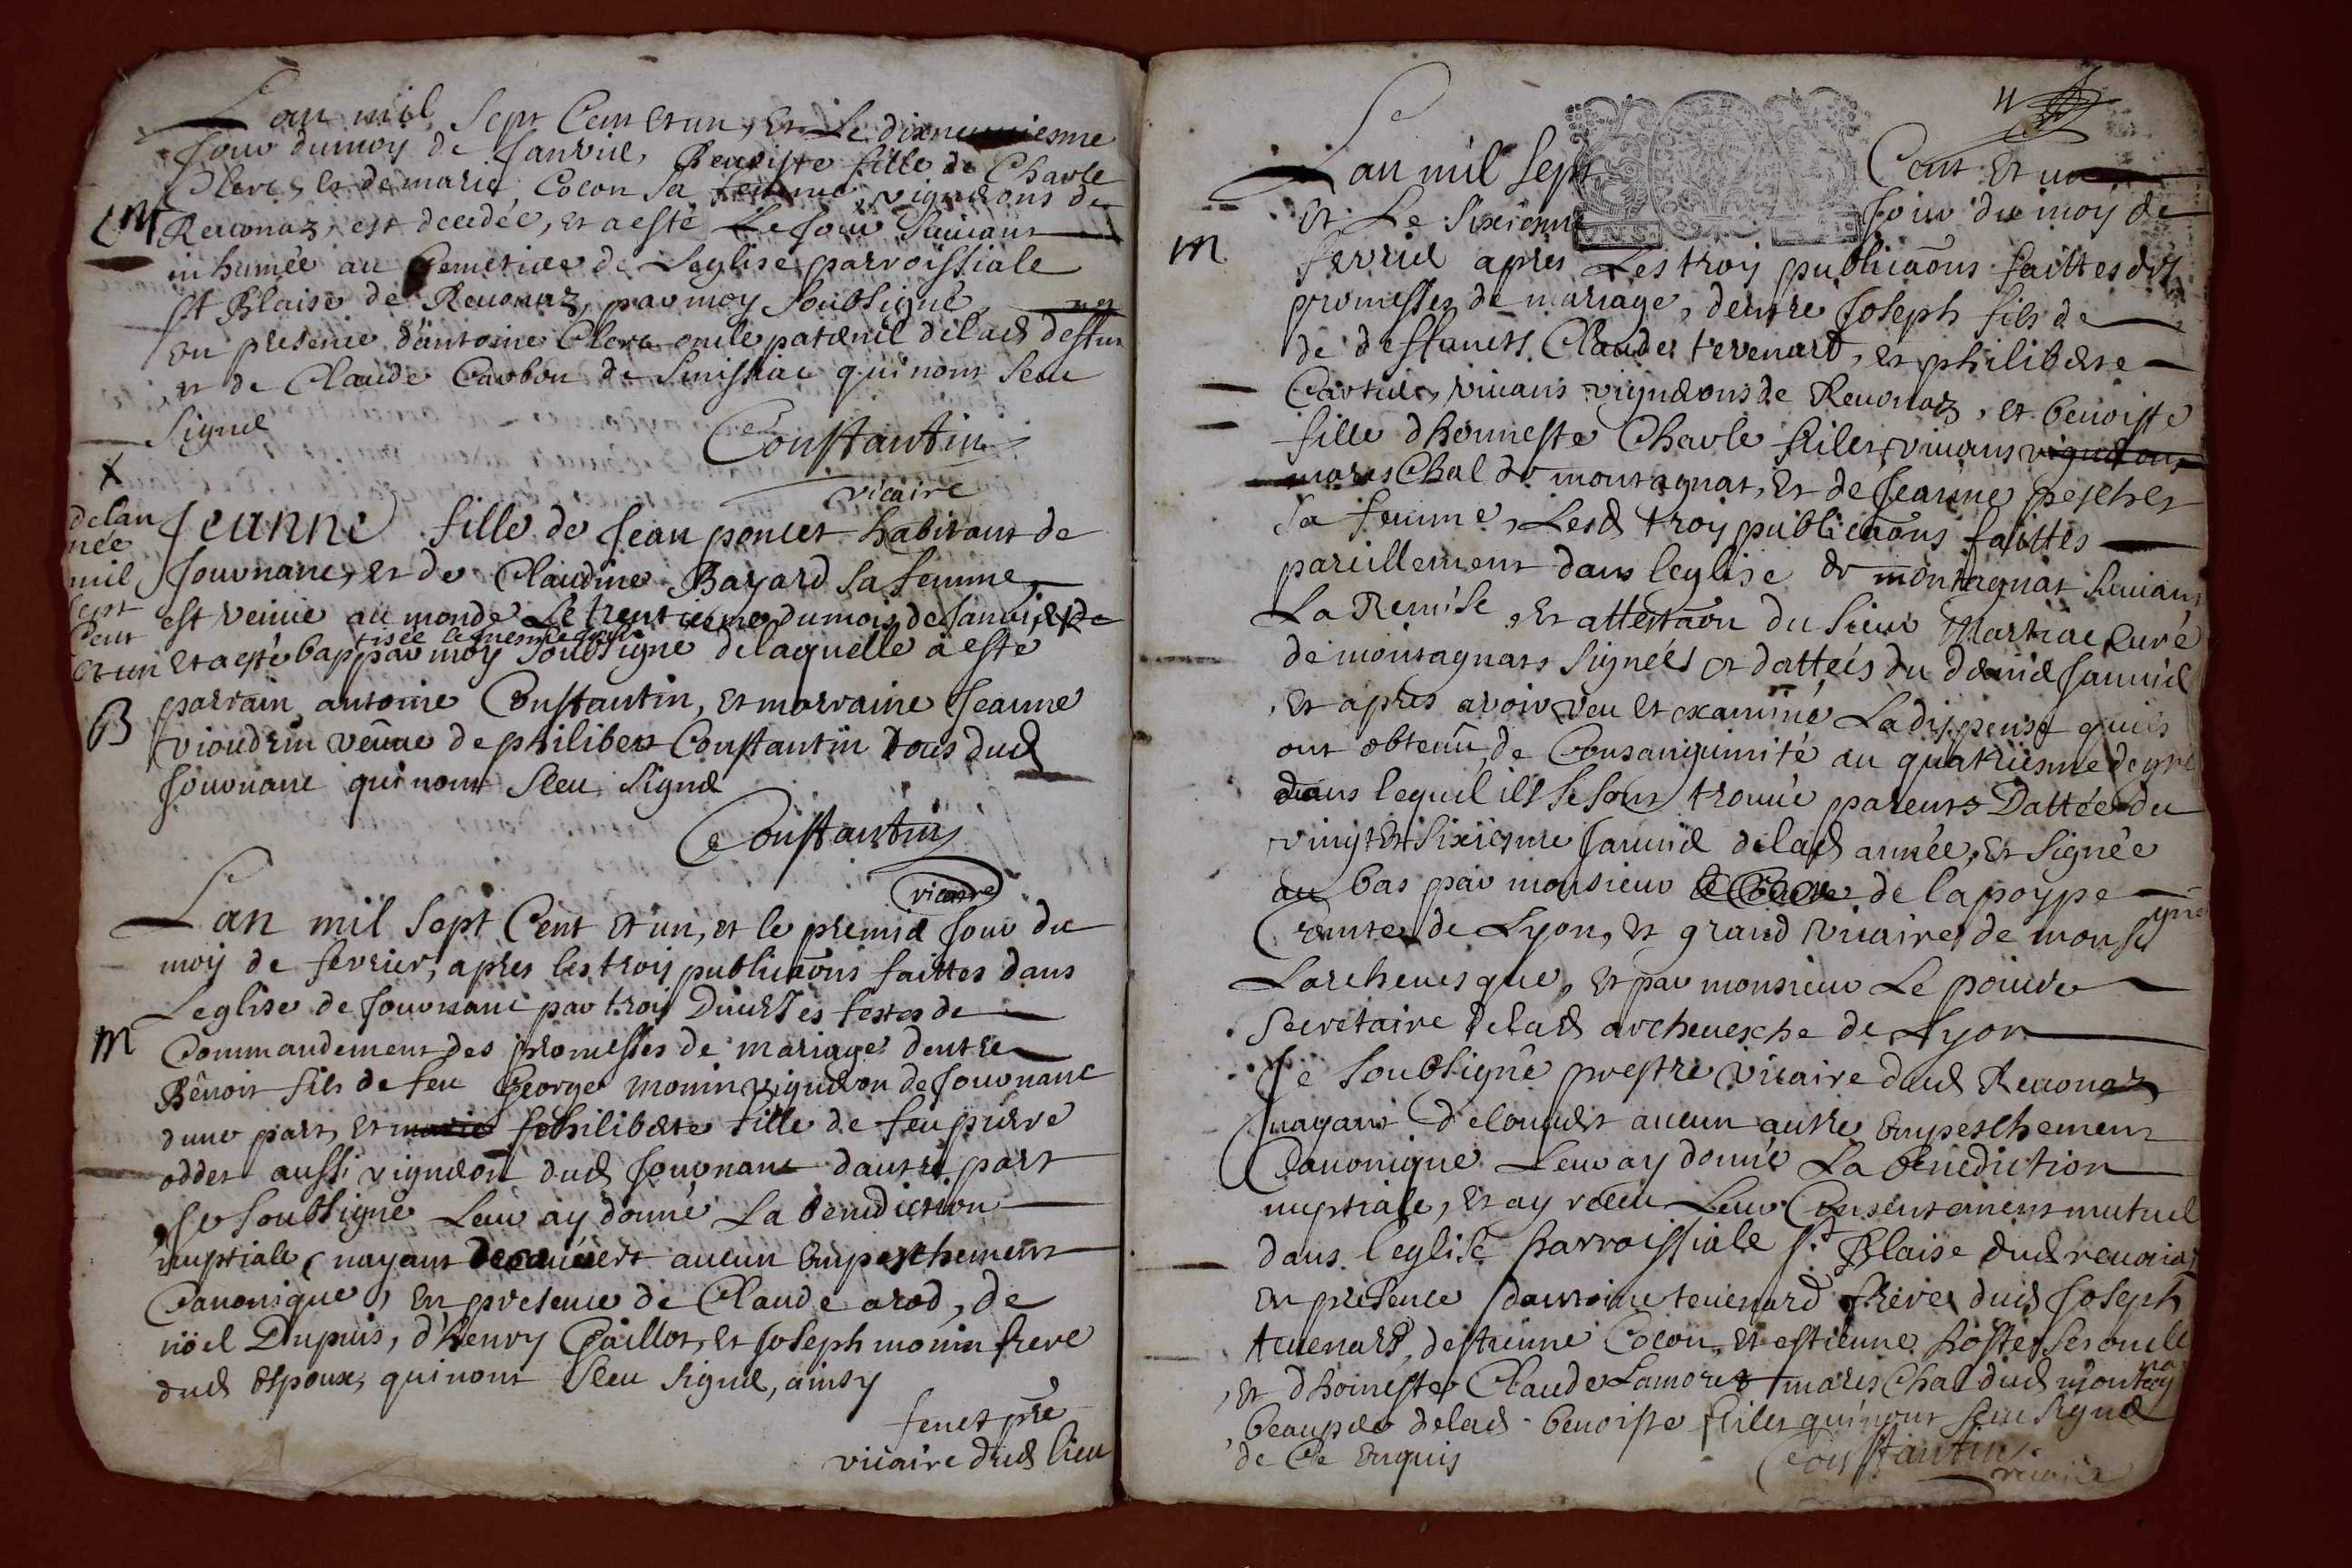 Lan mil Sept Cent et un, et Le dixneuviesme
Jour du moy de Janvier, Benoiste fille de Charle
Clerc, et de marie Cocon Sa femme vignerons de
M Revonaz, est decedée, et a esté Le Jour Suivant
inhumée au Cemetiere de Leglise parroissiale
St Blaise de Revonaz, par moy Soubsigné,
en presence d'antoine Clerc oncle paternel delad deffun
et de Claude Carbon de qui nont Sceu
Signer
Constantin
vicaire
X
delan
née
mil
Sept
Cent
et un
B
Jeanne fille de Jean poncet habitant de
Jouvnanc, et de Claudine Bayard Sa femme,
est venue au monde Le trentiesme du mois de Janvier
tisée le mesme jour
et a esté bap par moy Soubsigné delaquelle a esté
parrain antoine Constantin, et marraine Jeanne
vioudrin veuve de philibert Constantin tous dud
Jouvnanc qui nont Sceu Signer
Constantin
vicaire
Lan mil Sept Cent et un, et le premier Jour du
moy de fevrier, apres les troy publicaons faittes dans
Leglise de Jouvnanc par troy Diverses festes de
M Commandement des promesses de mariage dentre
Benoit fils de feu George monin vigneron de Jouvnanc
dune part, et marie philiberte fille de feu pierre
oddet aussi vigneron dud Jouvnanc dautre part
Je Soubsigné Leur ay donné La benediction
nuptiale, nayant decouvert aucun Empeschement
Canonique, en presence de Claude arod, de
nöel Dupuis, d'henry Gaillot, et Joseph monin frere
dud Espoux, qui nont Sceu Signer, ainsy
fenet pre
vicaire dud lieu
4
Lan mil Sept Cent et un
et Le Sixiesme Jour du moy de
M fevrier apres Les troy publicaons faittes des
promesses de mariage, dentre Joseph fils de
de deffuncts Claude tevenard, et philiberte
Cartier, vivans vignerons de Revonaz, et benoiste
fille dhonneste Charle filler, vivans vigneron
mareschal de montagnat, et de Jeanne peschet
Sa femme, Lesd troy publicaons faittes
pareillement dans leglise de montagnat Suivant
La Remise et attestaon du Sieur Martine Curé
de montagnat, Signées et dattées du dernier Janvier
et apres avoir veu et examiné La dispense quils
ont obtenu de Consanguinité au quatriesme degré
dans lequel ils Se Sont trouvé parents Dattée du
vingt et Sixiesme Janvier delad année, et Signée
au bas par monsieur de lapoype
Comte de Lyon, et grand vicaire de monseigne
Larchevesque, et par monsieur Le poivre
Secretaire delad archevesche de Lyon
Je Soubsigné prestre vicaire dud Revonaz
nayant decouvert aucun autre Empeschement
Canonique Leur ay donné La benediction
nuptiale, et ay reccu Leur Consentement mutuel
dans leglise parroissiale St Blaise dud revonaz
en presence dantoine tevenard frere dud Joseph
tevenard, destienne Cocon, et estienne hoste Ses oncle
et dhonneste Claude Lamorez mareschal dud montag
beaupere delad benoiste filler qui nont Sceu Signer
de Ce Enquis
Constantin
vicaire